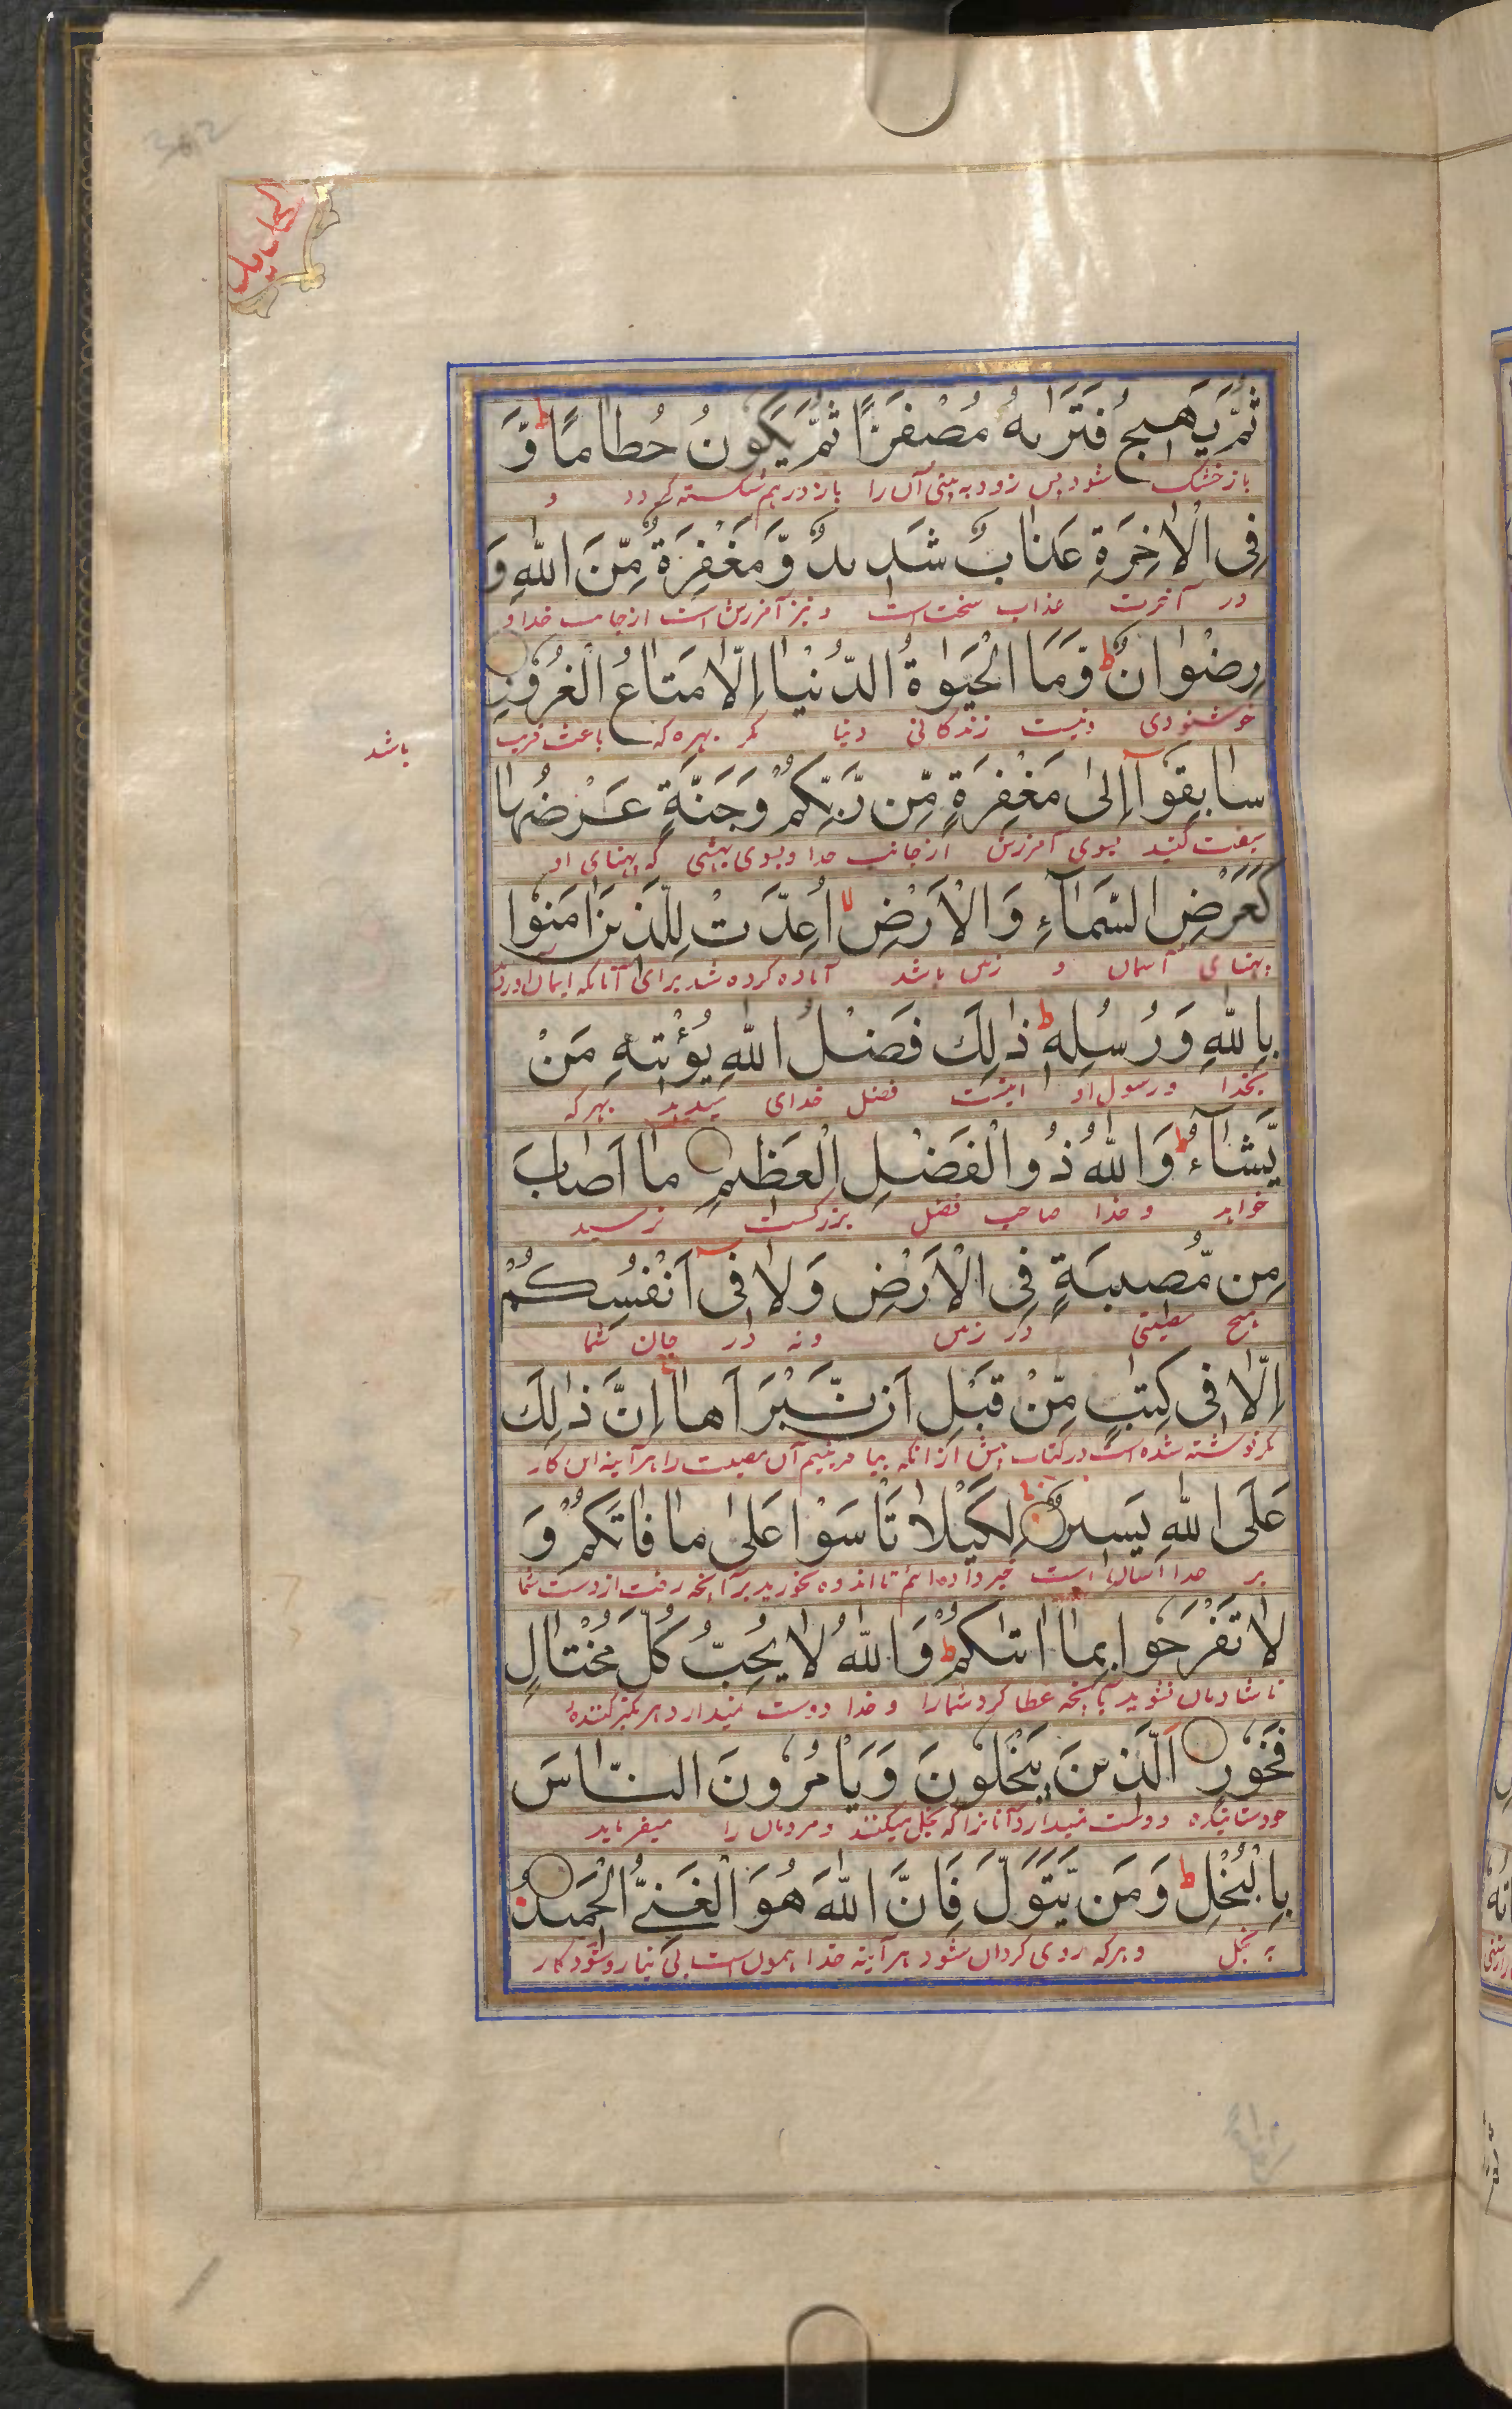 الحديد
ثُمَّ يَهِيجُ فَتَرٰىهُ مُصْفَرًّا ثُمَّ يَكُونُ حُطَامًا ط وَّ
باز خشک شود پس زود به بینی آن را باز درهم شکسته گردد و
فِى الْاٰخِرَةِ عَذَابٌ شَدِيدٌ وَّمَغْفِرَةٌ مِّنَ اللّٰهِ وَ
در آخرت عذاب سخت است و نیز آمرزش است از جانب خدا و
رِضْوَانٌ ط وَمَا الْحَيٰوةُ الدُّنْيَا اِلَّا مَتَاعُ الْغُرُوْرِ
خوشنودی و نیست زندگانی دنیا مگر بهره که باعث فریب
باشد
سَابِقُوْٓا اِلٰى مَغْفِرَةٍ مِّن رَّبِّكُمْ وَجَنَّةٍ عَرْضُهَا
سبقت کنید بسوی آمرزش از جانب خدا و بسوی بهشتی که پهنای او
كَعَرْضِ السَّمَآءِ وَالْاَرْضِ لا اُعِدَّتْ لِلَّذِيْنَ اٰمَنُوْا
پهنای آسمان و زمین باشد آماده کرده شد برای آنانکه ایمان آوردند
بِاللّٰهِ وَرُسُلِهٖ ط ذٰلِكَ فَضْلُ اللّٰهِ يُؤْتِيْهِ مَنْ
بخدا و رسول او اینست فضل خدای میدهد بهرکه
يَّشَآءُ ط وَاللّٰهُ ذُو الْفَضْلِ الْعَظِيْمِ مَا اَصَابَ
خواهد و خدا صاحب فضل بزرگست نرسید
مِن مُّصِيبَةٍ فِى الْاَرْضِ وَلَا فِىٓ اَنْفُسِكُمْ
هیچ مصیبتی در زمین و نه در جان شما
اِلَّا فِى كِتٰبٍ مِّنْ قَبْلِ اَنْ نَّبْرَاَهَا ط اِنَّ ذٰلِكَ
مگر نوشته شده است در کتاب پیش از آنکه بیافرینیم آن مصیبت را هرآینه این کار
عَلَى اللّٰهِ يَسِيْرٌ لِكَيْلَا تَاْسَوْا عَلٰى مَا فَاتَكُمْ وَ
بر خدا آسان است خبر داده ایم تا اندوه نخورید بر آنچه رفت از دست شما
لَا تَفْرَحُوا بِمَا اٰتٰىكُمْ ط وَاللّٰهُ لَا يُحِبُّ كُلَّ مُخْتَالٍ
تا شادمان نشوید بآنچه عطا کرد شمارا و خدا دوست نمیدارد هر تکبر کننده
فَخُوْرٍ الَّذِيْنَ يَبْخَلُونَ وَيَاْمُرُونَ النَّاسَ
خودستاینده دوست نمیدارد آنانرا که بخل میکنند و مردمان را میفرمایند
بِالْبُخْلِ ط وَمَن يَّتَوَلَّ فَاِنَّ اللّٰهَ هُوَ الْغَنِىُّ الْحَمِيْدُ
به بخل و هرکه روی گردان شود هرآینه خدا همون است بی نیاز و ستوده کار